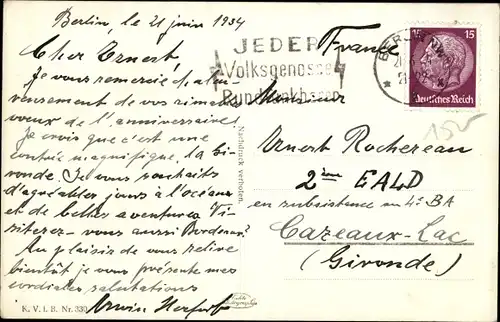 Berlin, le 21 juin 1934
Cher Ernest,
Je vous
remercie
de vos
voeux de l'anniversaire
Je crois que c'est une
contrée magnifique, la Gi-
ronde. Je vous souhaits
d'agréables jours à l'océan
et de belles aventures. Vi-
siterez-vous aussi Bordeaux?
Au plaisir de vous relire
bientôt je vous présente mes
cordiales salutations
Erwin
K. V. i. B. Nr. 330
Nachdruck verboten.
JEDER
Volksgenosse
Rundfunkhörer
BERLIN
France
15 15
Deutsches Reich
150
Monsieur
Ernest Rochereau
2ème EALD
en subsistance au 4e BA
Cazeaux-Lac
(Gironde)